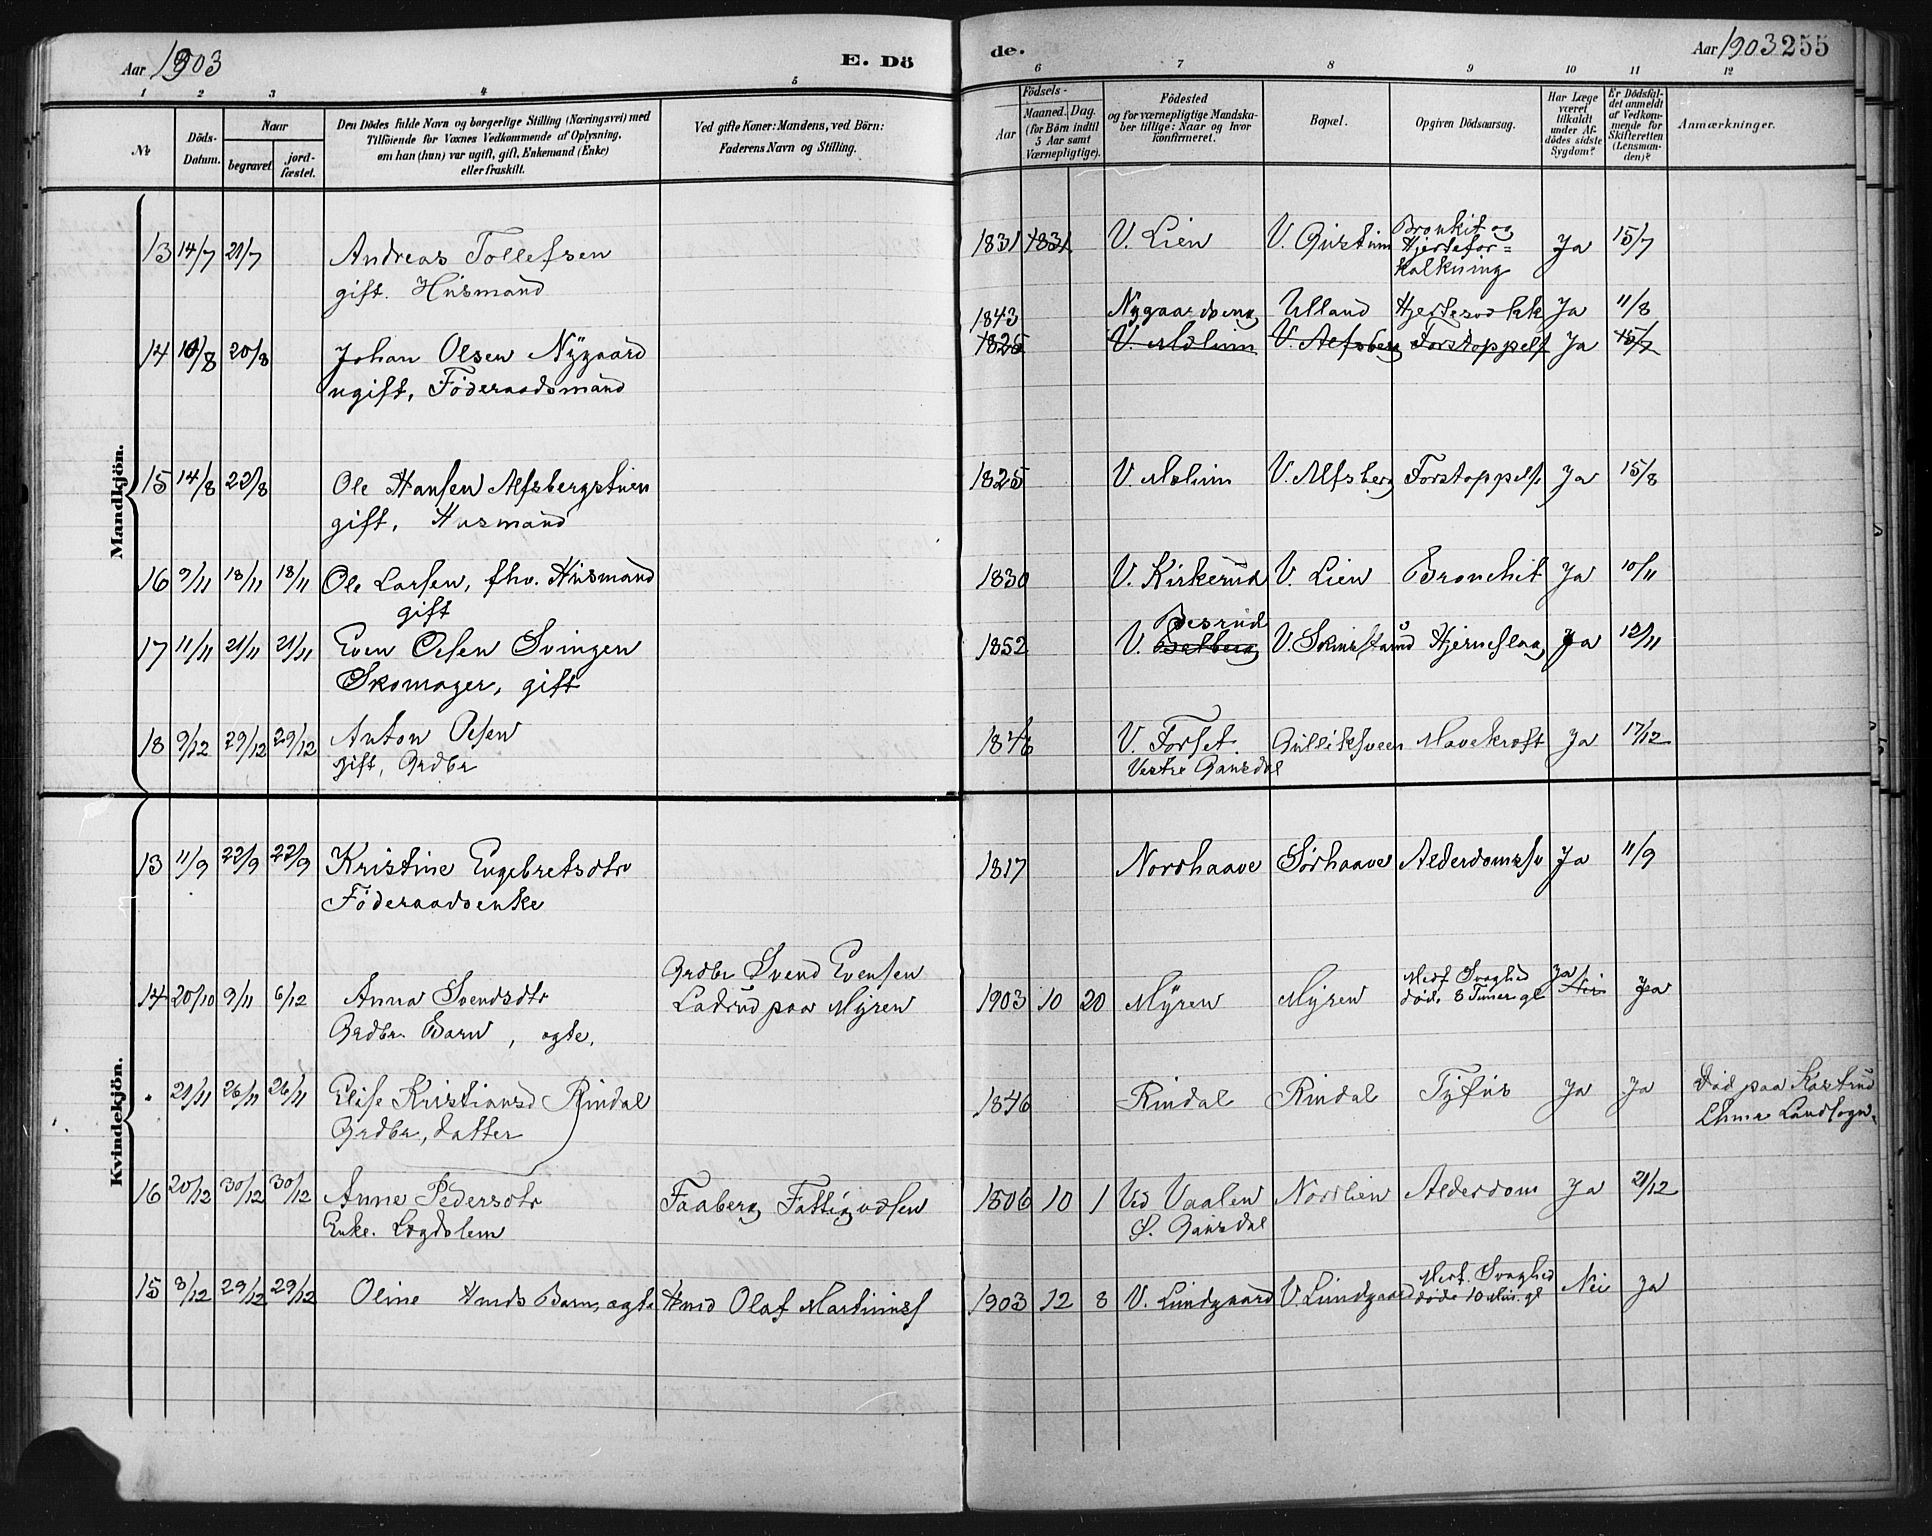 Aar 1903
E. Dö
de.
Aar 1903 255
1 2 3 4 5 6 7 8 9 10 11 12
No
Döds-
Datum.
Naar
begravet
jord-
fæstet.
Den Dödes fulde Navn og borgerlige Stilling (Næringsvei) med
Tilföiende for Voxnes Vedkommende af Oplysning,
om han (hun) var ugift, gift, Enkemand (Enke)
eller fraskilt.
Ved gifte Koner: Mandens, ved Börn:
Faderens Navn og Stilling.
Födsels-
Aar
Maaned. Dag.
(for Börn indtil
5 Aar samt
Værnepligtige).
Födested
og for værnepligtige Mandska-
ber tillige: Naar og hvor
Konfirmeret.
Bopæl.
Opgiven Dödsaarsag.
Har Læge
været
tilkaldt
under Af-
dödes sidste
Sygdom?
Er Dödsfal-
det anmeldt
af Vedkom-
mende for
Skifteretten
(Lensman-
den)?
Anmærkninger.
Mandkjön.
13 14/7 21/7 Andreas Tollefsen 1831 1831 V. Lien Bronkit og
Hjertefor=
kalkning Ja 15/7
gift. Husmand
1843 Ulland Ja 11/8
14 10/8 20/8 Johan Olsen Nygaard 1825 Forstoppels Ja 15/7
ugift, Föderaadsmand
15 14/8 22/8 Ole Hansen Alfsbergstuen 1825 V. Alfsberg Forstoppels Ja 15/8
gift, Husmand
16 9/11 18/11 18/11 Ole Larsen, fhv. Husmand 1830 V. Kirkerud V. Lien Bronchit Ja 10/11
gift
Besrud
17 11/11 21/11 21/11 Even Olsen Svingen 1852 V. Hjerneslag Ja 12/11
Skomager, gift
18 9/12 29/12 29/12 Anton Olsen V. Forset. Gulliksveen Mavekræft Ja 17/12
gift, Grdbr Vestre Gausdal
Kvindekjön.
13 11/9 22/9 22/9 Kristine Engebretsdtr 1817 Nordhaave Sörhaave Alderdomssv Ja 11/9
Föderaadsenke
14 20/10 9/11 6/12 Anna Svendsdtr Grdbr Svend Evensen
Ladrud paa Myren 1903 10 20 Myren Myren Medf. Svaghed
död, 8 Timer gl Ja Nei Ja
Grdbr. Barn, ægte.
21/11 26/11 26/11 Elise Kristiansd Rindal 1846 Rindal Rindal Tyfus Ja Ja Död paa Kastrud
Lhmr Landsogn.
Grdbr, datter
16 20/12 30/12 30/12 Anne Pedersdtr Faaberg Fattigvæsen 1806 10 1 Ved Vaalen Nordlien Alderdom Ja 21/12
Enke. Lægdslem S. Gausdal
15 8/12 29/12 29/12 Oline Hmds Barn, ægte Hmd Olaf Martinius 1903 12 8 V. Lundgaard V. Lundgaard Medf. Svaghed
döde 10 Min. gl Nei Ja